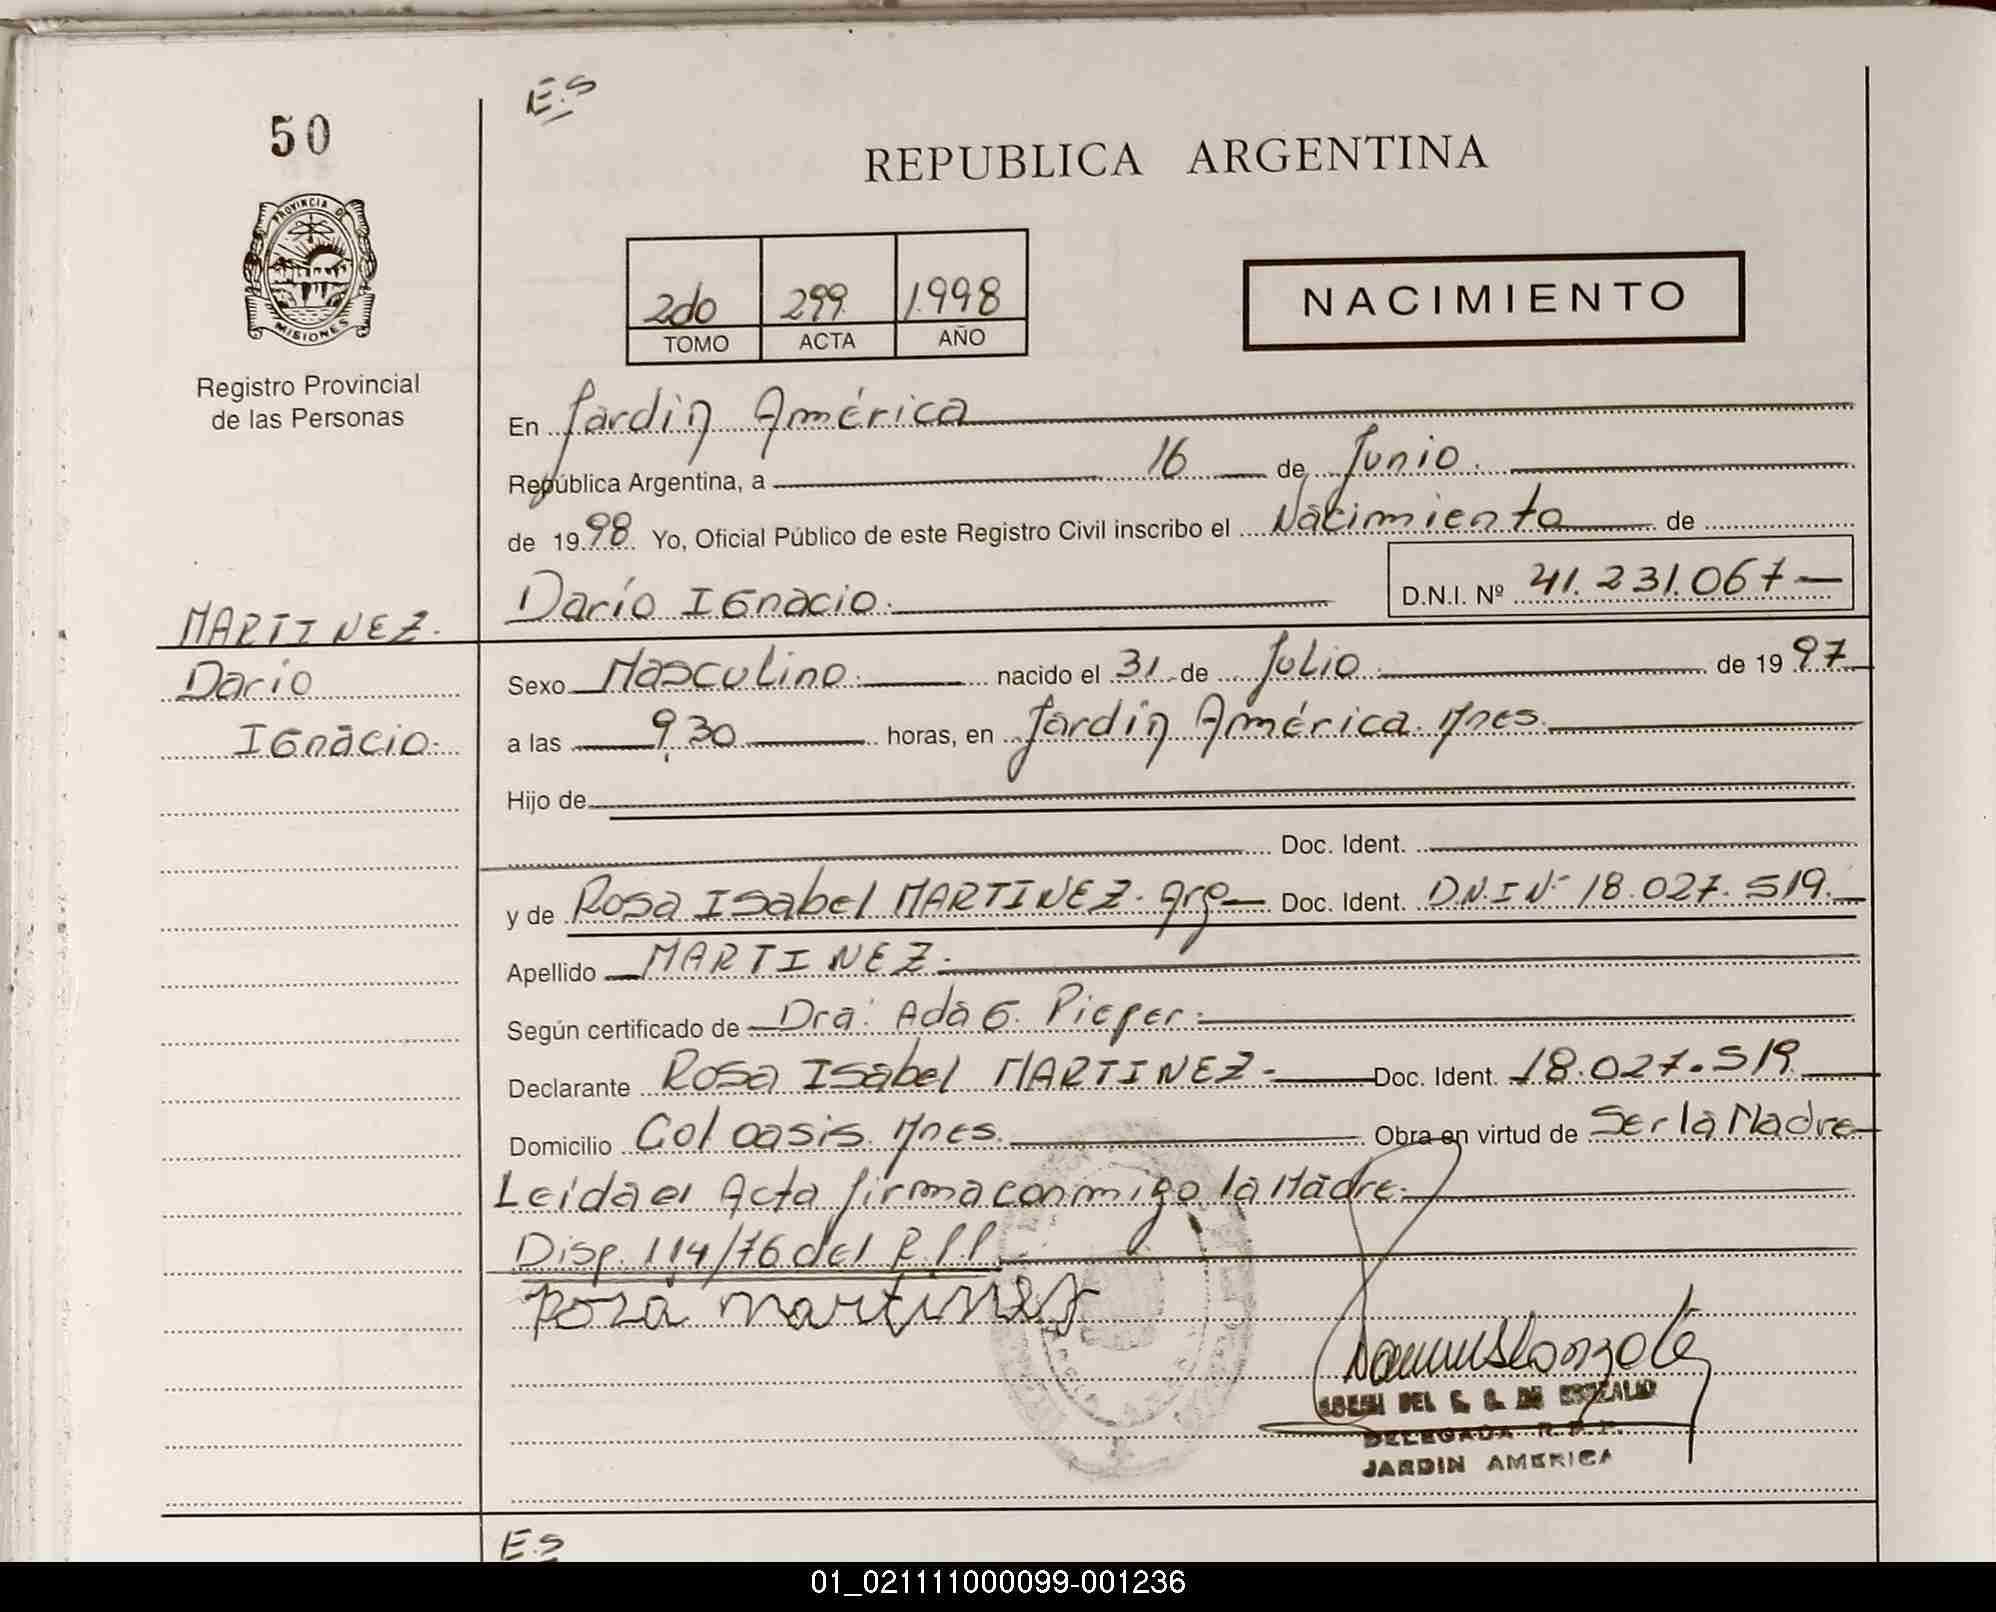 E.S
50
REPUBLICA ARGENTINA
PROVINCIA DE
MISIONES
2do 299 1.998
TOMO ACTA AÑO
NACIMIENTO
Registro Provincial
de las Personas
En Jardin América
República Argentina, a 16 de Junio.
de 1998. Yo, Oficial Público de este Registro Civil inscribo el Nacimiento de
Darío Ignacio. D.N.I. Nº 41.231.067
MARTINEZ.
Dario
Ignacio.
Sexo Masculino. nacido el 31 de Julio. de 1997
a las 9,30 horas, en Jardin América. Mnes.
Hijo de
Doc. Ident.
y de Rosa Isabel MARTINEZ. Arg Doc. Ident. D.N.I Nº 18.027.519.
Apellido MARTINEZ.
Según certificado de Dra: Ada G. Pieper.
Declarante Rosa Isabel MARTINEZ- Doc. Ident. 18.027.519
Domicilio Col oasis. Mnes. Obra en virtud de Ser la Madre
Leida el Acta firma conmigo la Madre.
Disp. 114/76 del R.P.P.
Roza martinez
DELEGADA R.P.P.
JARDIN AMERICA
E.S
01_021111000099-001236